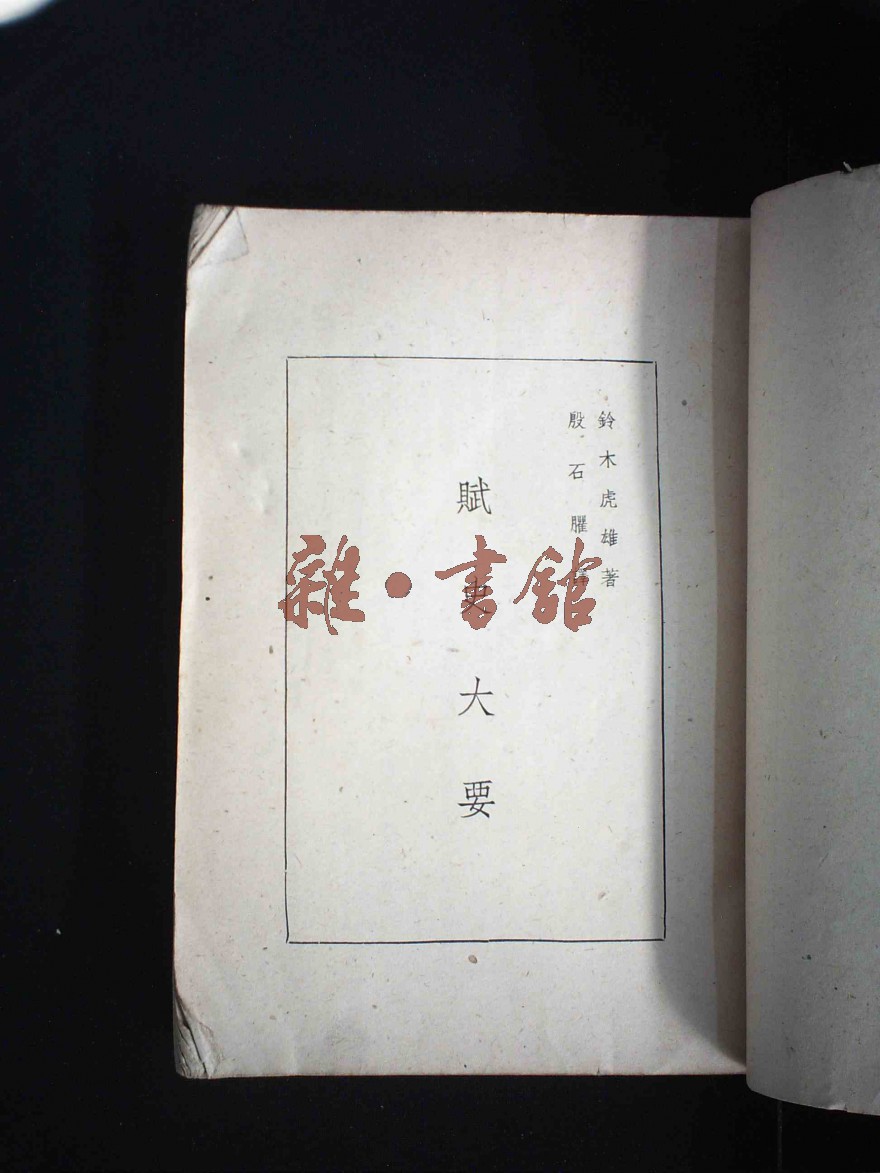 鈴木虎雄著
殷石臞譯
賦史大要
雜·書館